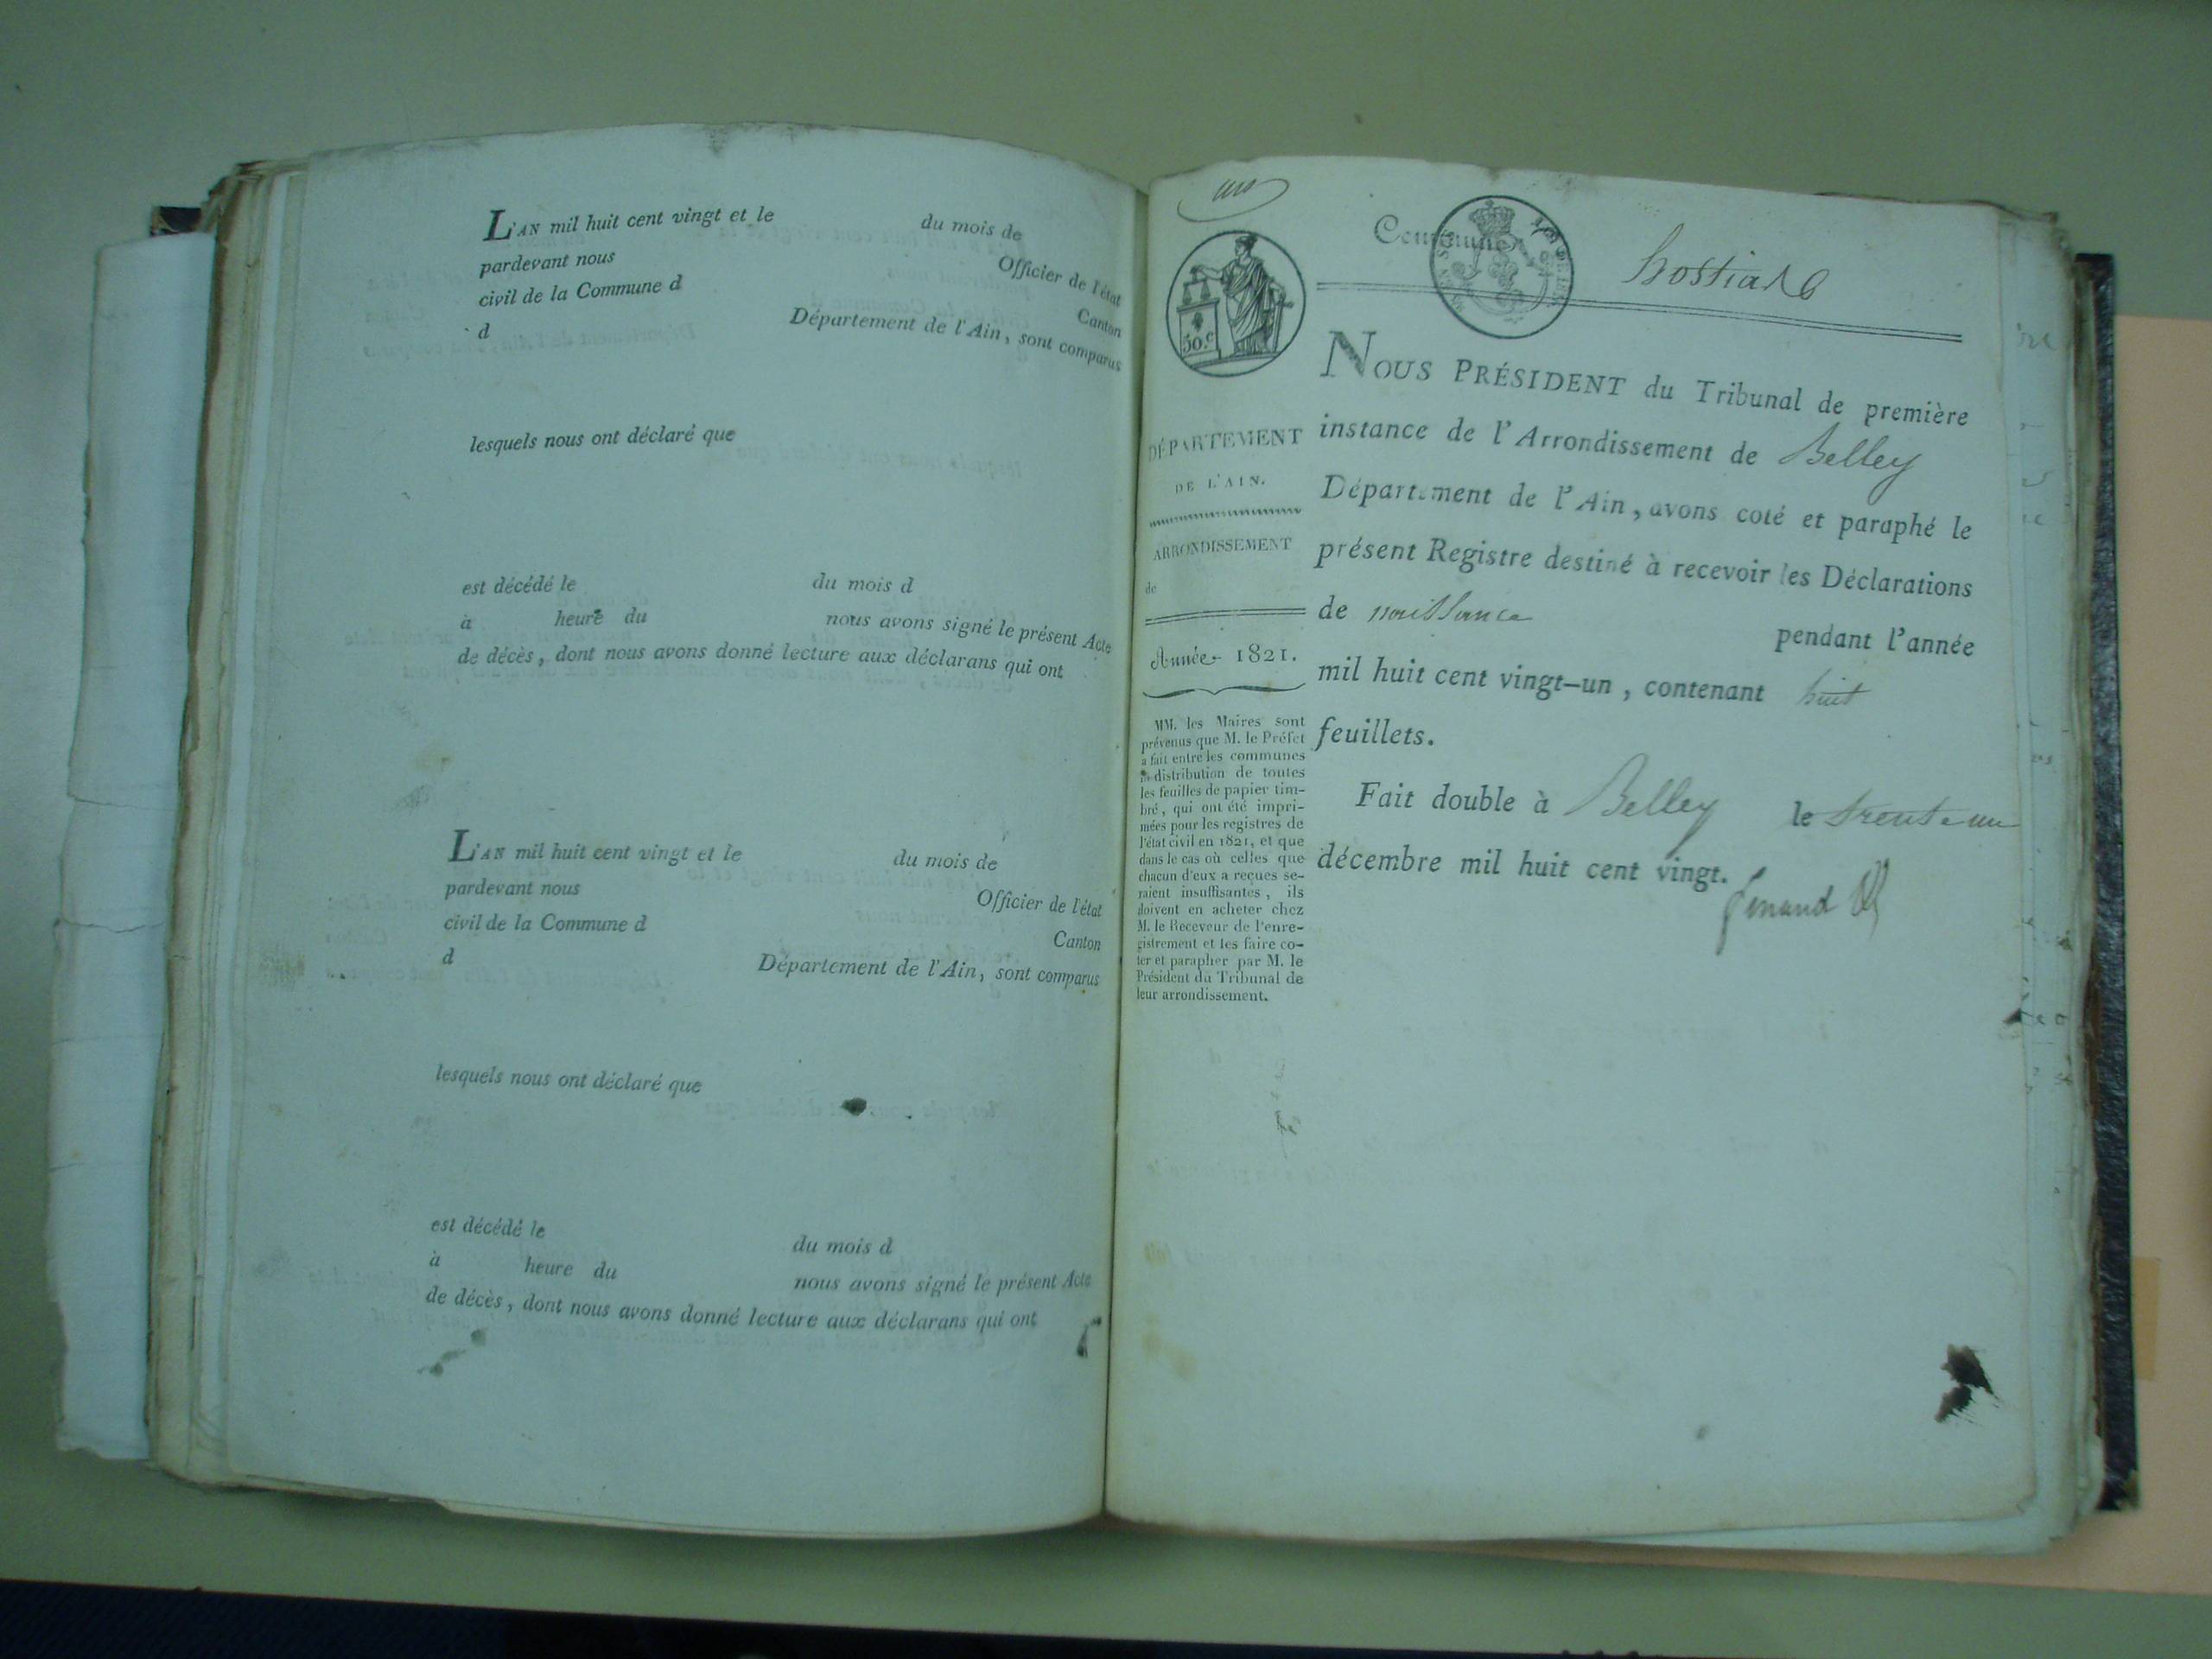 L'AN mil huit cent vingt et le du mois de
pardevant nous Officier de l'état
civil de la Commune d Canton
d Département de l'Ain, sont comparus
lesquels nous ont déclaré que
est décédé le du mois d
à heure du nous avons signé le présent Acte
de décès, dont nous avons donné lecture aux déclarans qui ont
L'AN mil huit cent vingt et le du mois de
pardevant nous Officier de l'état
civil de la Commune d Canton
d Département de l'Ain, sont comparus
lesquels nous ont déclaré que
est décédé le du mois d
à heure du nous avons signé le présent Acte
de décès, dont nous avons donné lecture aux déclarans qui ont
Commune
50.c
DÉPARTEMENT
DE L'AIN.
ARRONDISSEMENT
de
Année 1821.
MM. les Maires sont
prévenus que M. le Préfet
a fait entre les communes
la distribution de toutes
les feuilles de papier tim-
bré, qui ont été impri-
mées pour les registres de
l'état civil en 1821, et que
dans le cas où celles que
chacun d'eux a reçues se-
raient insuffisantes, ils
doivent en acheter chez
M. le Receveur de l'enre-
gistrement et les faire co-
ter et parapher par M. le
Président du Tribunal de
leur arrondissement.
NOUS PRÉSIDENT du Tribunal de première
instance de l'Arrondissement de Belley
Département de l'Ain, avons coté et paraphé le
présent Registre destiné à recevoir les Déclarations
de naissance pendant l'année
mil huit cent vingt-un, contenant huit
feuillets.
Fait double à Belley le trente un
décembre mil huit cent vingt.